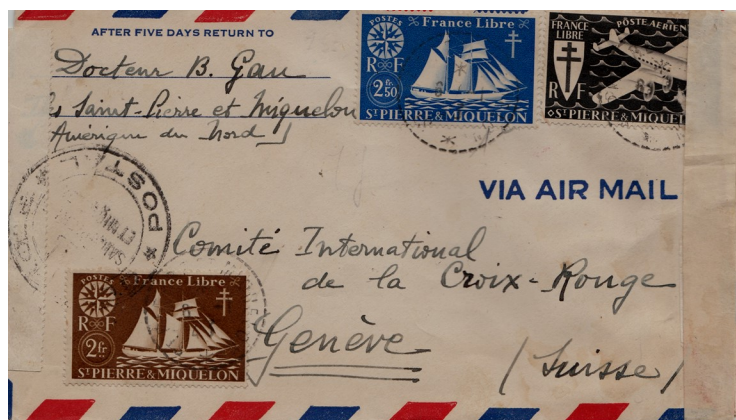 AFTER FIVE DAYS RETURN TO
Docteur B. Gau
Saint-Pierre et Miquelon
Amérique du Nord
POSTES France Libre
RF
2fr50
ST PIERRE & MIQUELON
FRANCE LIBRE
POSTE AERIEN
RF
ST PIERRE & MIQUEL
POSTAL
VIA AIR MAIL
Comité International
de la Croix-Rouge
Genève
(Suisse)
POSTES France Libre
RF
2fr
ST PIERRE & MIQUELON